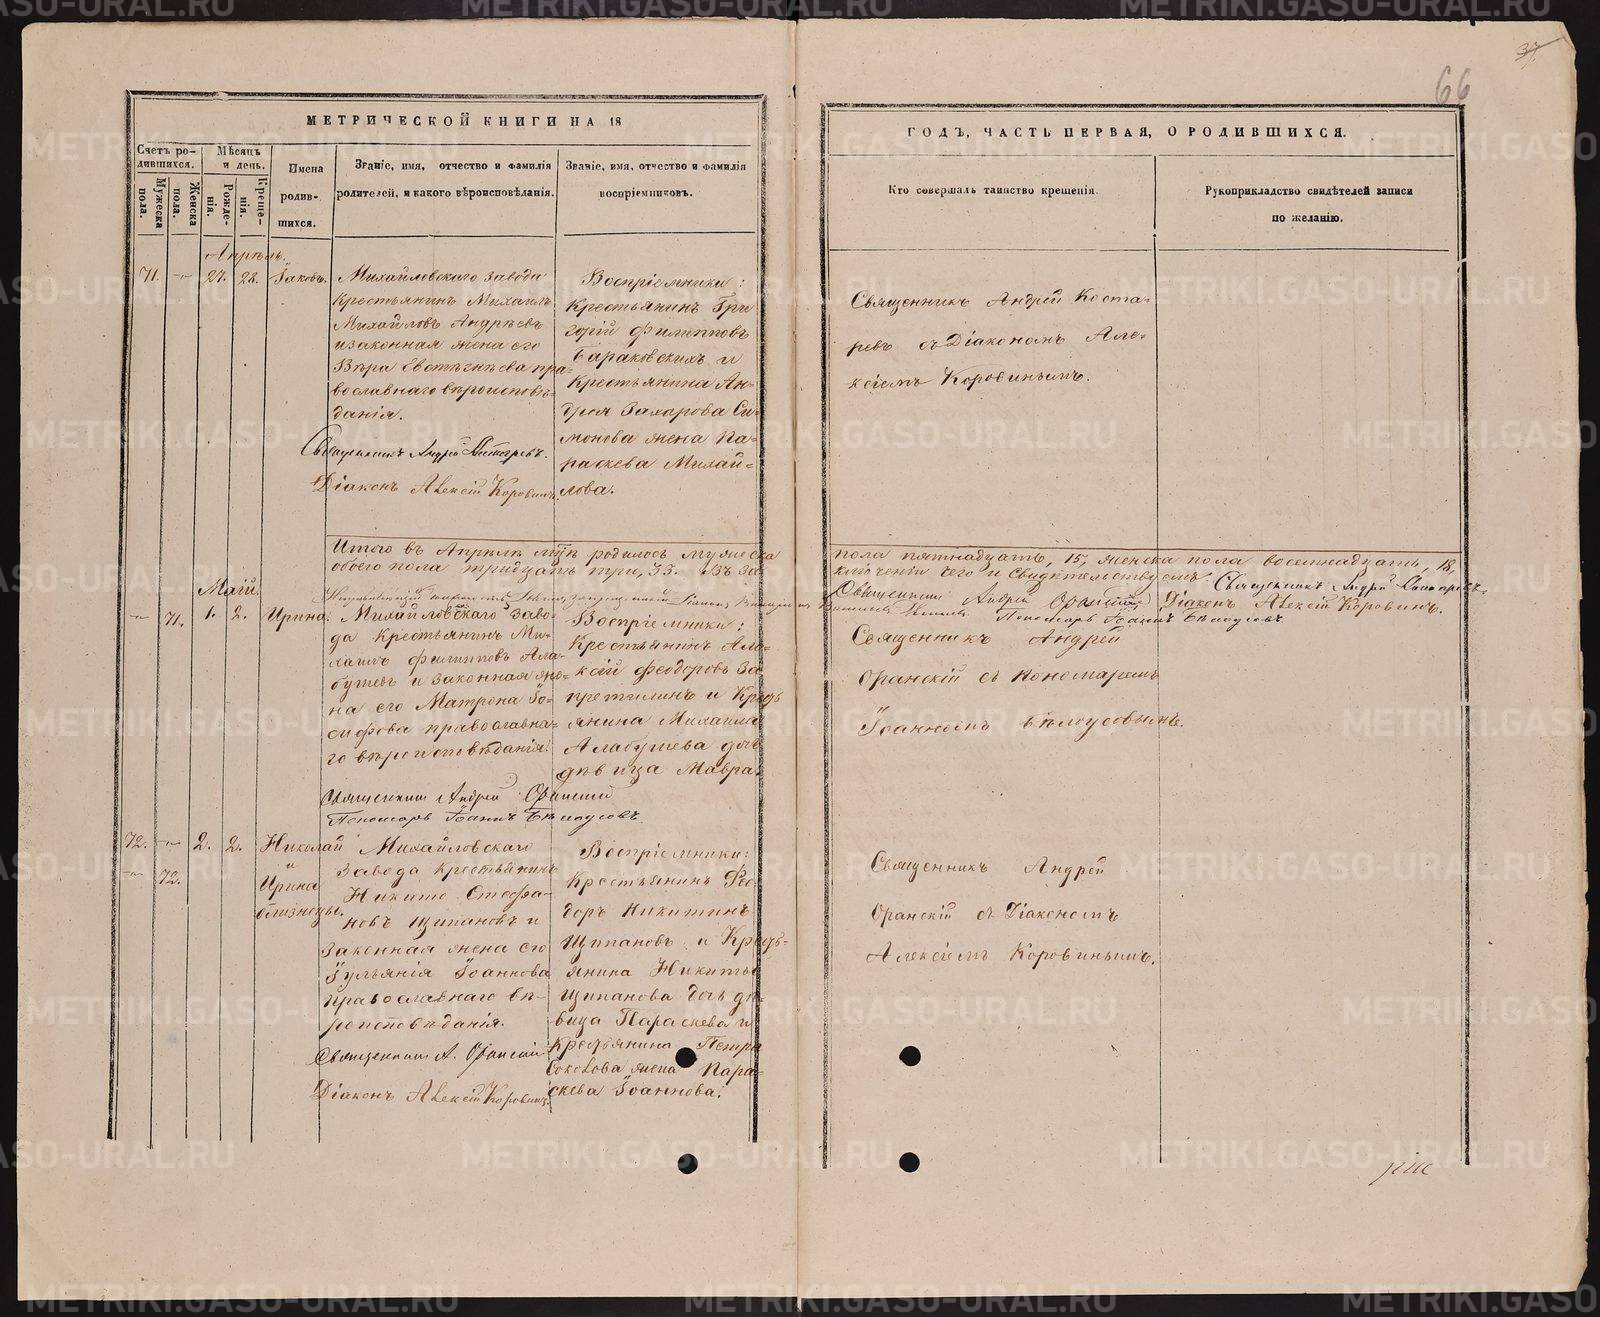 37.
66
МЕТРИЧЕСКОЙ КНИГИ НА 18
Счетъ ро-
дившихся.
Мужеска
пола.
Женска
пола.
Мѣсяцъ
и день.
Рожде-
нія.
Креще-
нія.
Имена
родив-
шихся.
Званіе, имя, отчество и фамилія
родителей, и какого вѣроисповѣданія.
Званіе, имя, отчество и фамилія
воспріемниковъ.
ГОДЪ, ЧАСТЬ ПЕРВАЯ, О РОДИВШИХСЯ.
Кто совершалъ таинство крещенія.
Рукоприкладство свидѣтелей записи
по желанію.
Апрѣль.
71. — 27. 28. Іаковъ.
Михайловскаго завода
крестьянинъ Михаилъ
Михайловъ Андрѣевъ
и законная жена его
Вѣра Евстигнѣева пра-
вославнаго вѣроисповѣ-
данія.
Священникъ Андрей Костаревъ.
Діаконъ Алексій Коровинъ.
Воспріемники:
Крестьянин Гри
горій Филипповъ
Бараковскихъ и
Крестьянина Ан-
дрея Захарова Си-
монова жена Па-
раскева Михай-
лова.
Священникъ Андрей Коста-
ревъ съ Діакономъ Але-
ксіемъ Коровинымъ.
Итого въ Апрѣлѣ м͠цѣ родилось мужеска
пола пятнадцать, 15, женска пола восемнадцать, 18,
обоего пола тридцать три, 33. Въ за
ключеніи сего и свидѣтельствуемъ: Священникъ Андрей Костаревъ.
Священникъ Андрей Оранскій Діаконъ Алексій Коровинъ.
Пономарь Іоаннъ Бѣлоусовъ
Маій.
— 71. 1. 2. Ирина.
Михайловскаго заво-
да крестьянинъ Ми-
хаилъ Филипповъ Ала-
бушевъ и законная же-
на его Матрона Іо-
сифова православна-
го вѣроисповѣданія.
Священникъ Андрей Оранскій
Пономарь Іоаннъ Бѣлоусовъ
Воспріемники:
Крестьянинъ Але-
ксій Феодоровъ За
претилинъ и Кресть
янина Михаила
Алабушева дочь
дѣвица Мавра.
Священникъ Андрей
Оранскій съ Пономаремъ
Іоанномъ Бѣлоусовымъ.
72. — 2. 2. Николай
и
— 72. Ирина
близнецы.
Михайловскаго
завода крестьянинъ
Никита Стефа-
новъ Щипановъ и
законная жена его
Іульянія Іоаннова
православнаго вѣ-
роисповѣданія.
Священникъ А. Оранскій
Діаконъ Алексій Коровинъ.
Воспріемники:
Крестьянинъ Фео-
доръ Никитинъ
Щипановъ и Кресть-
янина Никиты
Щипанова дочь дѣ-
вица Параскева и
Крестьянина Петра
Соколова жена Пара-
скева Іоаннова.
Священникъ Андрей
Оранскій съ Діакономъ
Алексіемъ Коровинымъ.
METRIKI.GASO-URAL.RU